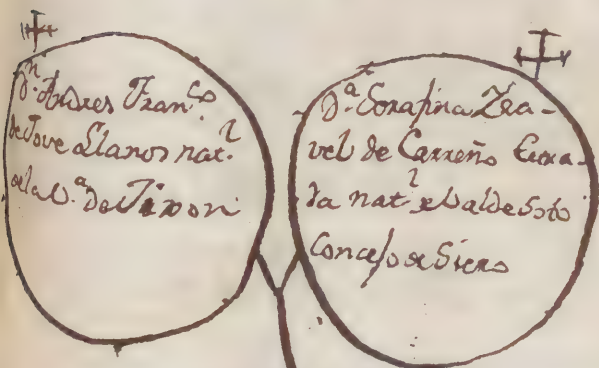 D.n Andres Fran.co
de Jove Llanos nat.l
de la V.a de Jixon
D.a Serafina Ysa-
vel de Carreño Estra-
da nat.l de Valdesoto
Concejo de Siero